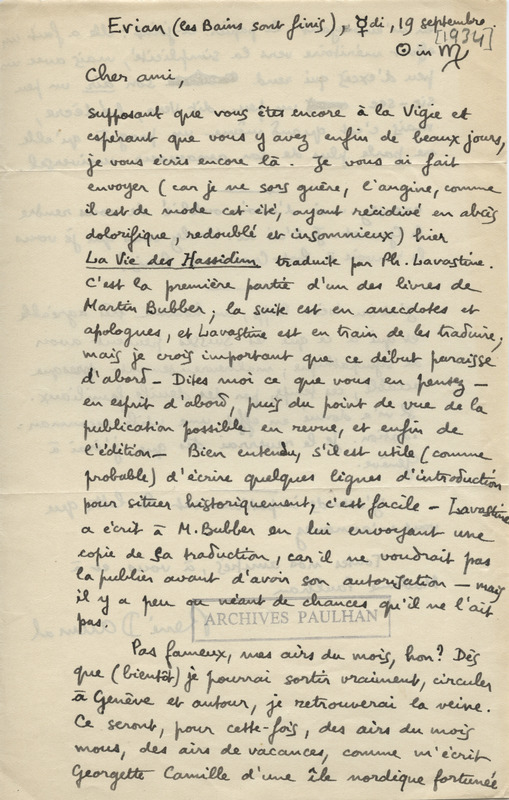 Evian (les Bains sont finis), ☿di, 19 septembre
[1934]
☉ in ♍
Cher ami,
supposant que vous êtes encore à la Vigie et
espérant que vous y avez enfin de beaux jours,
je vous écris encore là. Je vous ai fait
envoyer (car je ne sors guère, l'angine, comme
il est de mode cet été, ayant récidivé en abcès
dolorifique, redoublé et insomnieux) hier
La Vie des Hassidim traduite par Ph. Lavastine.
C'est la première partie d'un des livres de
Martin Bubber; la suite est en anecdotes et
apologues, et Lavastine est en train de les traduire;
mais je crois important que ce début paraisse
d'abord – Dites moi ce que vous en pensez –
en esprit d'abord, puis du point de vue de la
publication possible en revue, et enfin de
l'édition – Bien entendu, s'il est utile (comme
probable) d'écrire quelques lignes d'introduction
pour situer historiquement, c'est facile – Lavastine
a écrit à M. Bubber en lui envoyant une
copie de sa traduction, car il ne voudrait pas
la publier avant d'avoir son autorisation – mais
il y a peu ou néant de chances qu'il ne l'ait
pas.
ARCHIVES PAULHAN
Pas fameux, mes airs du mois, hon? Dès
que (bientôt) je pourrai sortir vraiment, circuler
à Genève et autour, je retrouverai la veine.
Ce seront, pour cette fois, des airs du mois
mous, des airs de vacances, comme m'écrit
Georgette Camille d'une île nordique fortunée